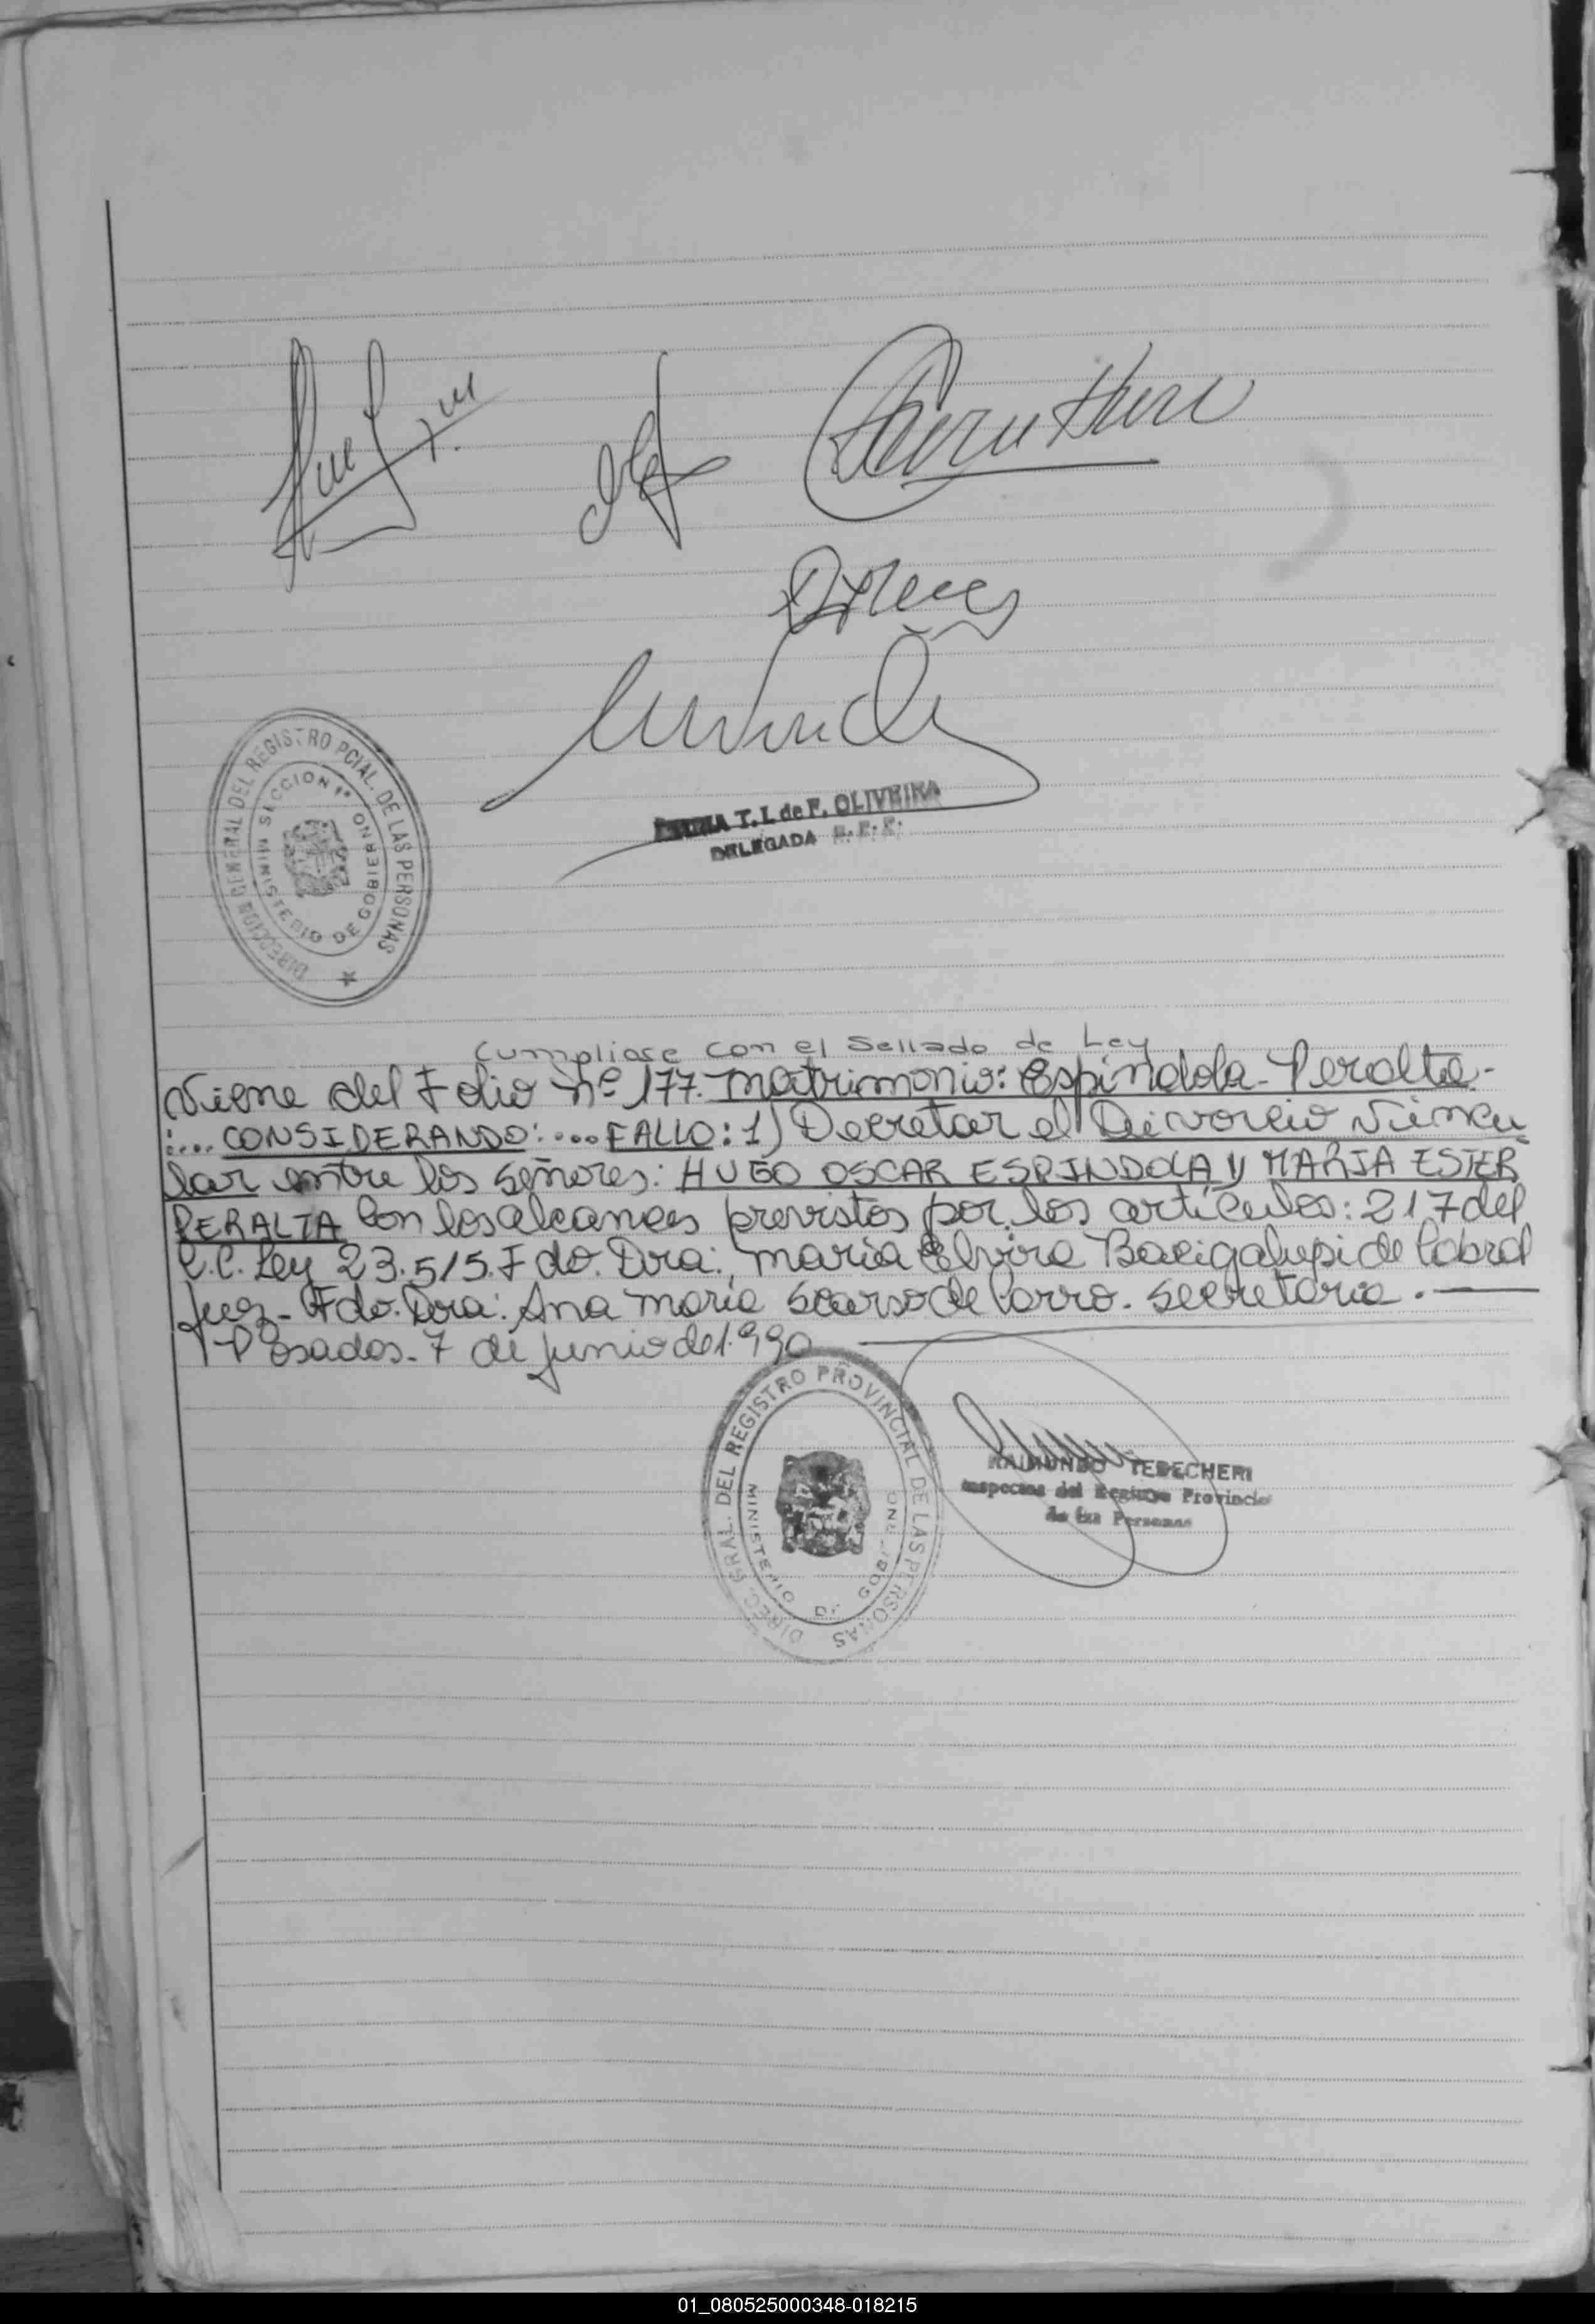 DIRECCION GENERAL DEL REGISTRO PCIAL. DE LAS PERSONAS
SECCION 1ª
MINISTERIO DE GOBIERNO
T. I. de F. OLIVEIRA
DELEGADA
Cumpliose con el Sellado de Ley
Viene del Folio nº 177. Matrimonio: Espíndola - Peralta.-
:... CONSIDERANDO: ... FALLO: 1) Decretar el Divorcio Vincu
lar entre los señores: HUGO OSCAR ESPINDOLA y MARIA ESTER
PERALTA Con los alcances previstos por los artículos: 217 del
C.C. Ley 23.515. Fdo. Dra: María Elvira Bacigalupi de Cabral
Juez - Fdo. Dra: Ana María Scarso de Parro. Secretaria. —
Posadas - 7 de junio de 1.990 —
DIREC. GRAL. DEL REGISTRO PROVINCIAL DE LAS PERSONAS
MINISTERIO DE GOBIERNO
RAIMUNDO TEDECHERI
Inspector del Registro Provincial
de las Personas
01_080525000348-018215